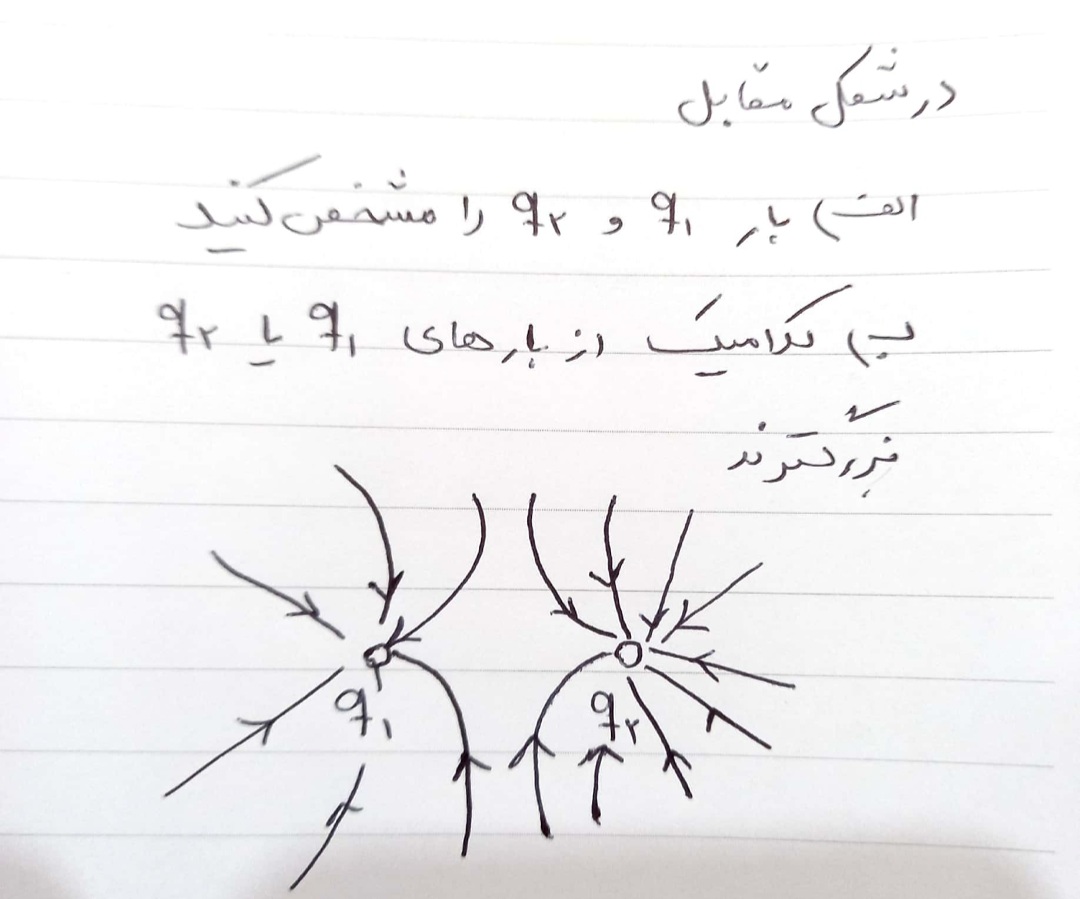 در شکل مقابل
الف) بار q₁ و q₂ را مشخص کنید
ب) کدامیک از بارهای q₁ یا q₂
بزرگترند
q₁ q₂